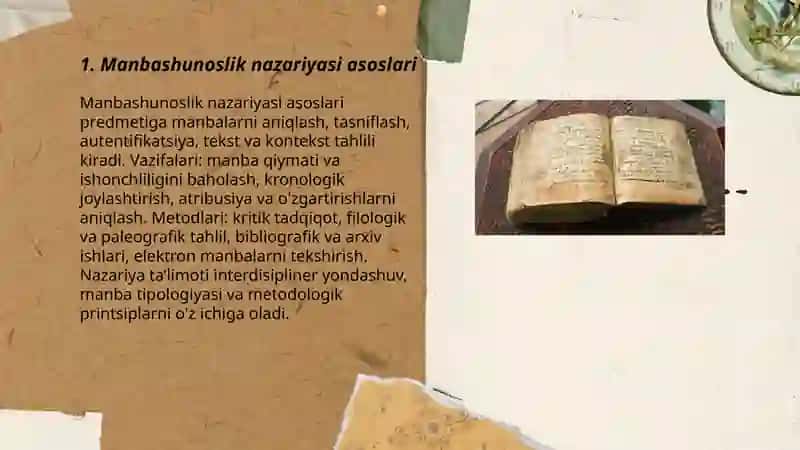 1. Manbashunoslik nazariyasi asoslari
Manbashunoslik nazariyasi asoslari
predmetiga manbalarni aniqlash, tasniflash,
autentifikatsiya, tekst va kontekst tahlili
kiradi. Vazifalari: manba qiymati va
ishonchliligini baholash, kronologik
joylashtirish, atribusiya va o'zgartirishlarni
aniqlash. Metodlari: kritik tadqiqot, filologik
va paleografik tahlil, bibliografik va arxiv
ishlari, elektron manbalarni tekshirish.
Nazariya ta'limoti interdisipliner yondashuv,
manba tipologiyasi va metodologik
printsiplarni o'z ichiga oladi.